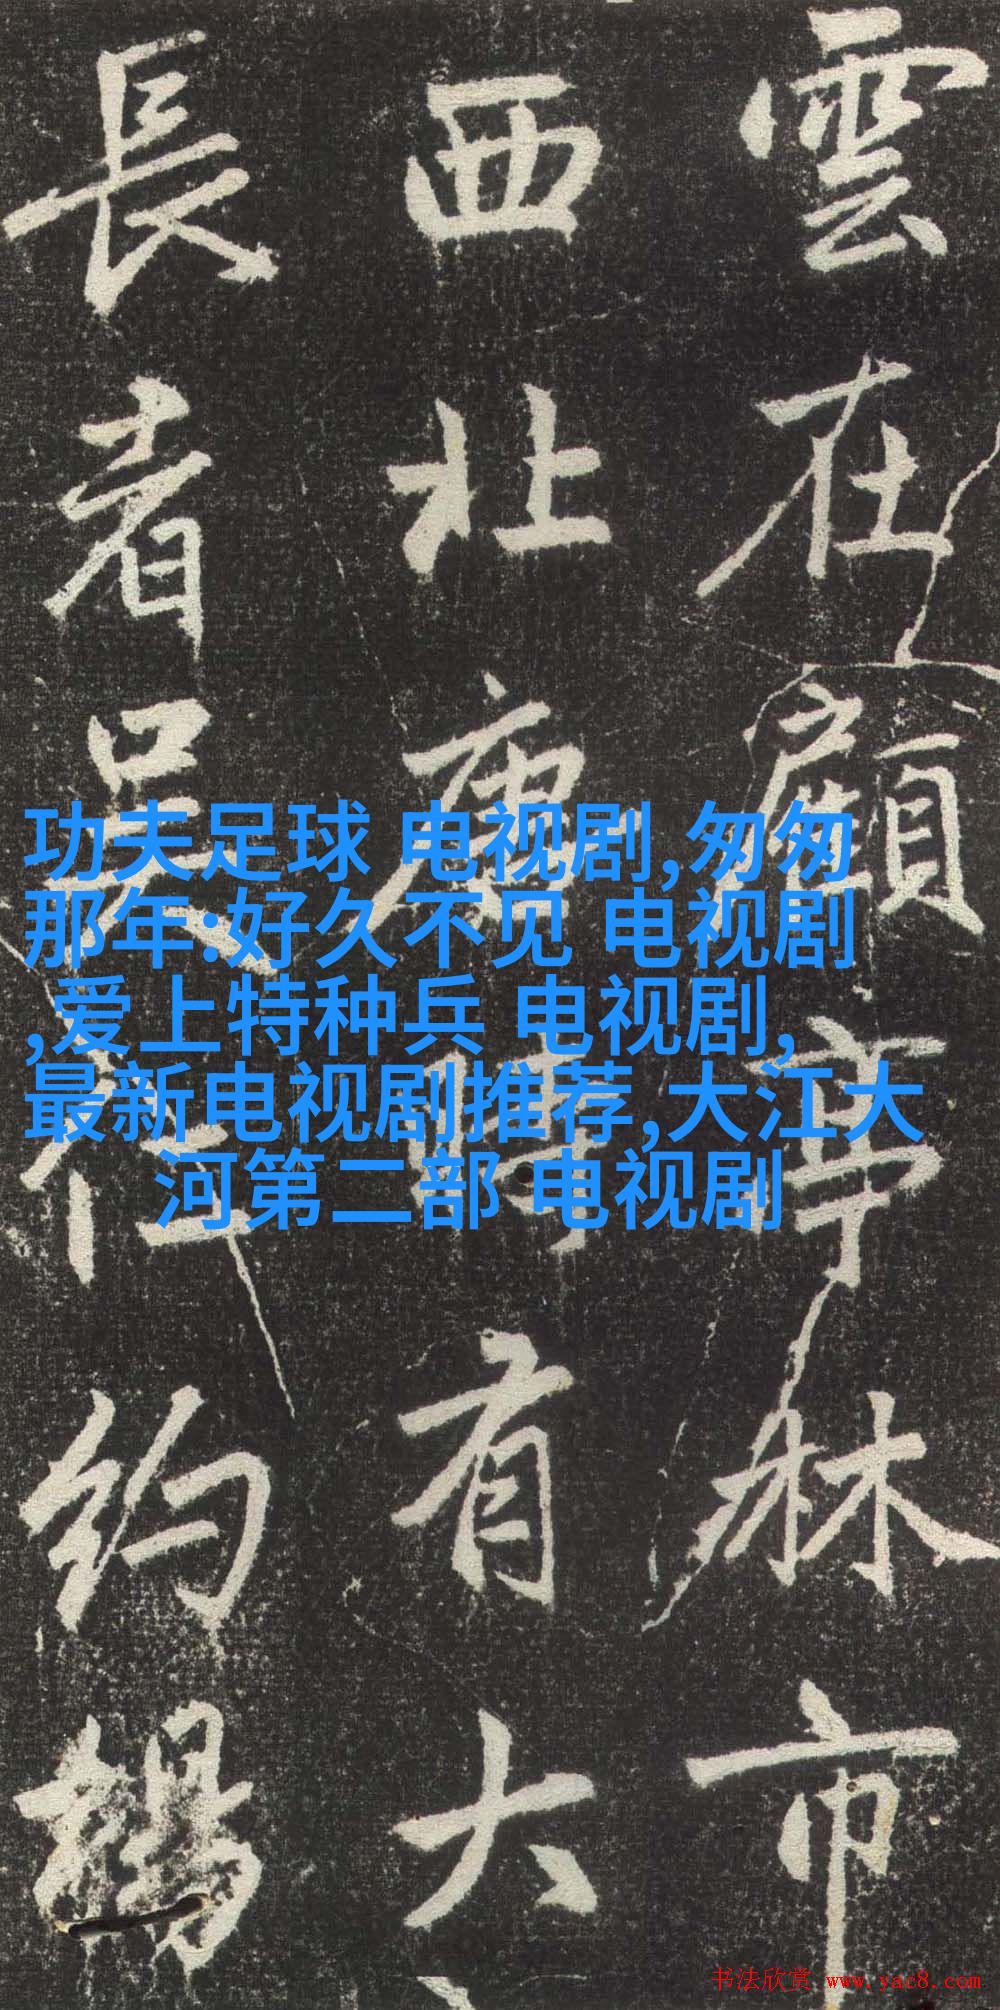 雲在顧亭林市
西北廣陳有大
長者吳
約楊
功夫足球 电视剧,匆匆
那年:好久不见 电视剧
,爱上特种兵 电视剧,
最新电视剧推荐,大江大
河第二部 电视剧
书法欣赏 www.yac8.com